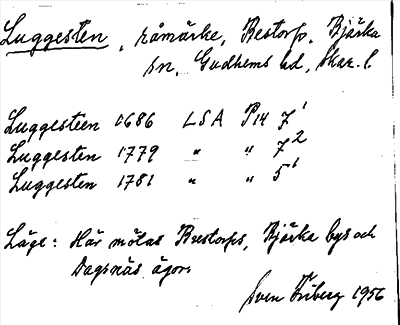 Luggesten, råmärke, Bestorp, Bjärka
sn, Gudhems hd, Skar. l.
Luggesteen 1686 LSA P14 7¹
Luggesten 1779 " " 7²
Luggesten 1781 " " 5¹
Läge: Här mötas Brestorps, Bjärka bys och
Dagsnäs ägor.
Sven Friberg 1956